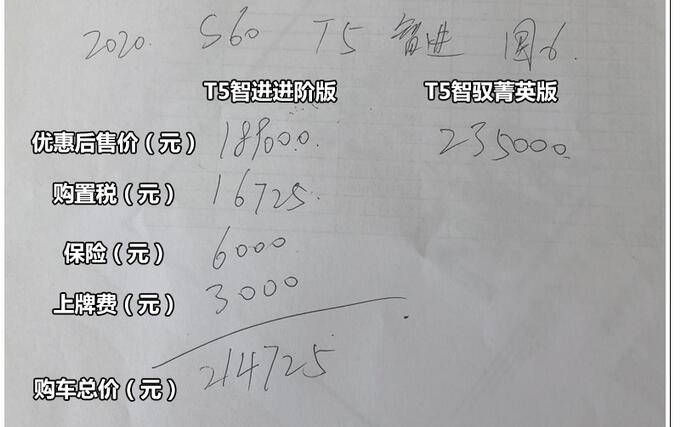 2020. S60 T5 智进 国六.
T5智进进阶版 T5智驭菁英版
优惠后售价（元） 189000. 235000.
购置税（元） 16725.
保险（元） 6000
上牌费（元） 3000
购车总价（元） 214725